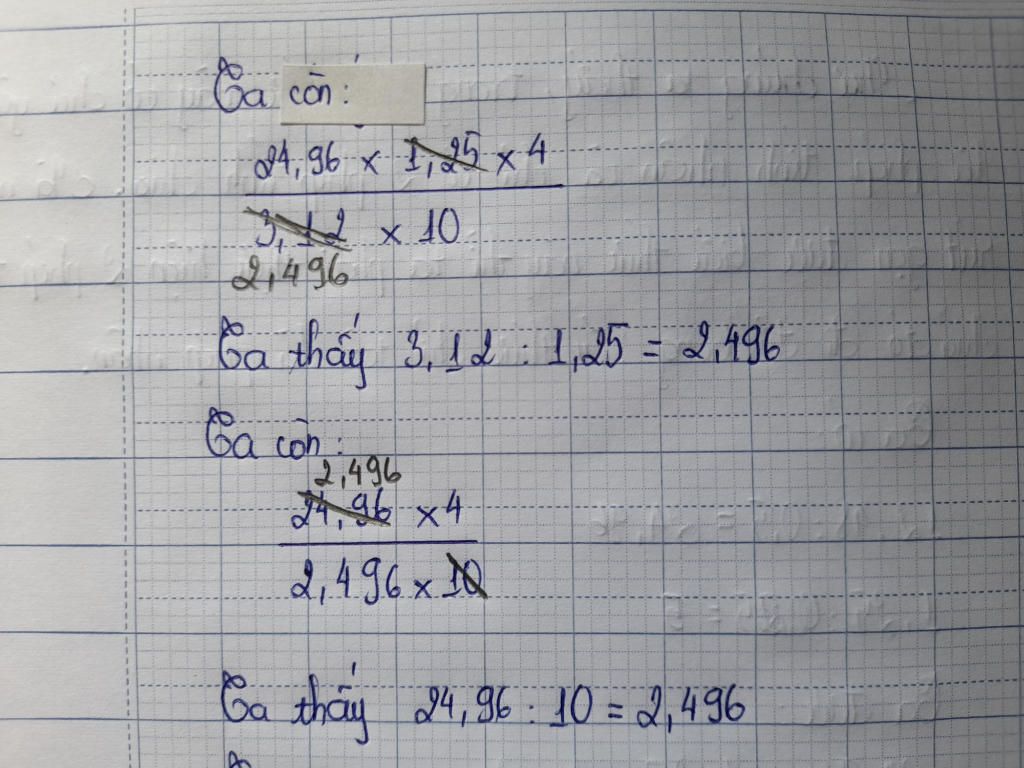 Ta còn:
24,96 x 1,25 x 4
3,12 x 10
2,496
Ta thấy 3,12 : 1,25 = 2,496
Ta còn:
2,496
24,96 x 4
2,496 x 10
Ta thấy 24,96 : 10 = 2,496